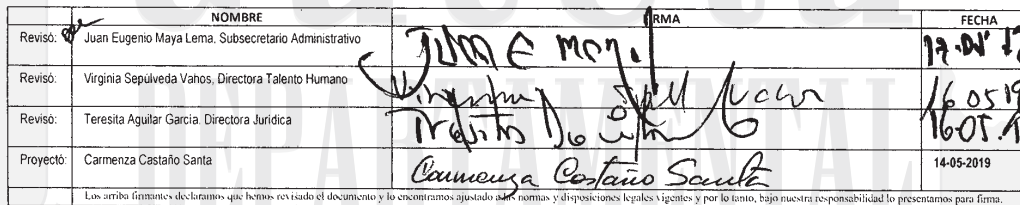 NOMBRE FIRMA FECHA
Revisó: Juan Eugenio Maya Lema. Subsecretario Administrativo
Revisó: Virginia Sepúlveda Vahos, Directora Talento Humano 16 05 19
Revisó: Teresita Aguilar Garcia. Directora Jurídica 16-05-1
Proyectó: Carmenza Castaño Santa Carmenza Castaño Santa 14-05-2019
Los arriba firmantes declaramos que hemos revisado el documento y lo encontramos ajustado a las normas y disposiciones legales vigentes y por lo tanto, bajo nuestra responsabilidad lo presentamos para firma.
DEPARTAMENTAL